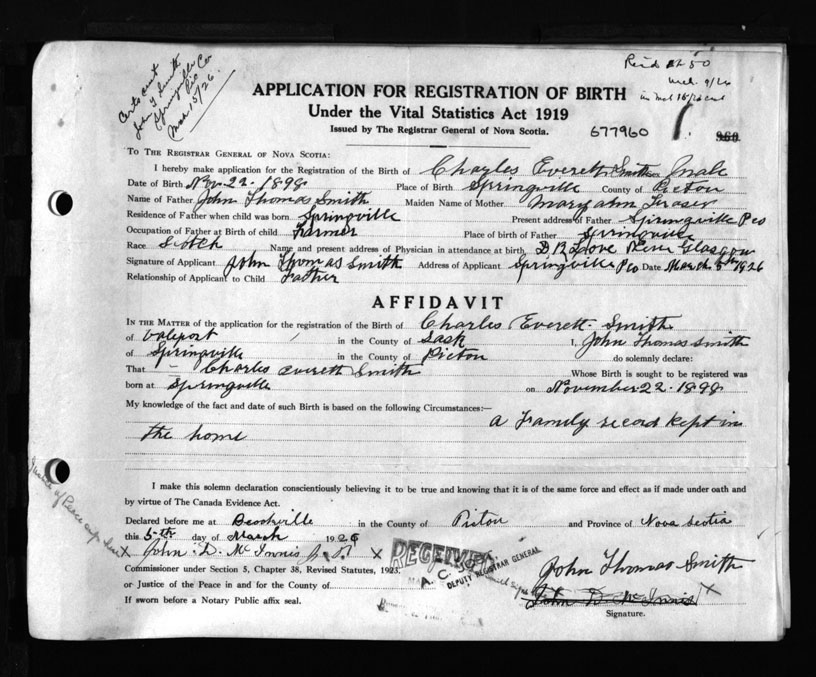 Certs sent
John T Smith
Springville
Pic Co
Mar 15/26.
Rec'd 50
Mch 9/26
APPLICATION FOR REGISTRATION OF BIRTH
Under the Vital Statistics Act 1919
Issued by The Registrar General of Nova Scotia.
677960
1.
969
TO THE REGISTRAR GENERAL OF NOVA SCOTIA:
I hereby make application for the Registration of the Birth of Charles Everett Smith Male
Date of Birth Nov. 22. 1898 Place of Birth Springville County of Picton
Name of Father John Thomas Smith Maiden Name of Mother Mary ann Fraser
Residence of Father when child was born Springville Present address of Father Springville P co
Occupation of Father at Birth of child Farmer Place of birth of Father Springville
Race Scotch Name and present address of Physician in attendance at birth D. R. Love New Glasgow
Signature of Applicant John Thomas Smith Address of Applicant Springville P co Date March 5th 1926
Relationship of Applicant to Child Father
AFFIDAVIT
IN THE MATTER of the application for the registration of the Birth of Charles Everett Smith
of Valeport in the County of Sask I, John Thomas Smith
of Springville in the County of Picton do solemnly declare:
That Charles Everett Smith Whose Birth is sought to be registered was
born at Springville on November 22. 1898
My knowledge of the fact and date of such Birth is based on the following Circumstances:—
a Family record kept in
the home
I make this solemn declaration conscientiously believing it to be true and knowing that it is of the same force and effect as if made under oath and
by virtue of The Canada Evidence Act.
Declared before me at in the County of Picton and Province of Nova Scotia
this 5th day of March 1926
x John D. Mc Innis J. P. x
Justice of Peace
RECEIVED
A. C.
DEPUTY REGISTRAR GENERAL
Commissioner under Section 5, Chapter 38, Revised Statutes, 1923.
or Justice of the Peace in and for the County of
If sworn before a Notary Public affix seal.
John Thomas Smith
John D Mc Innis x
Signature.